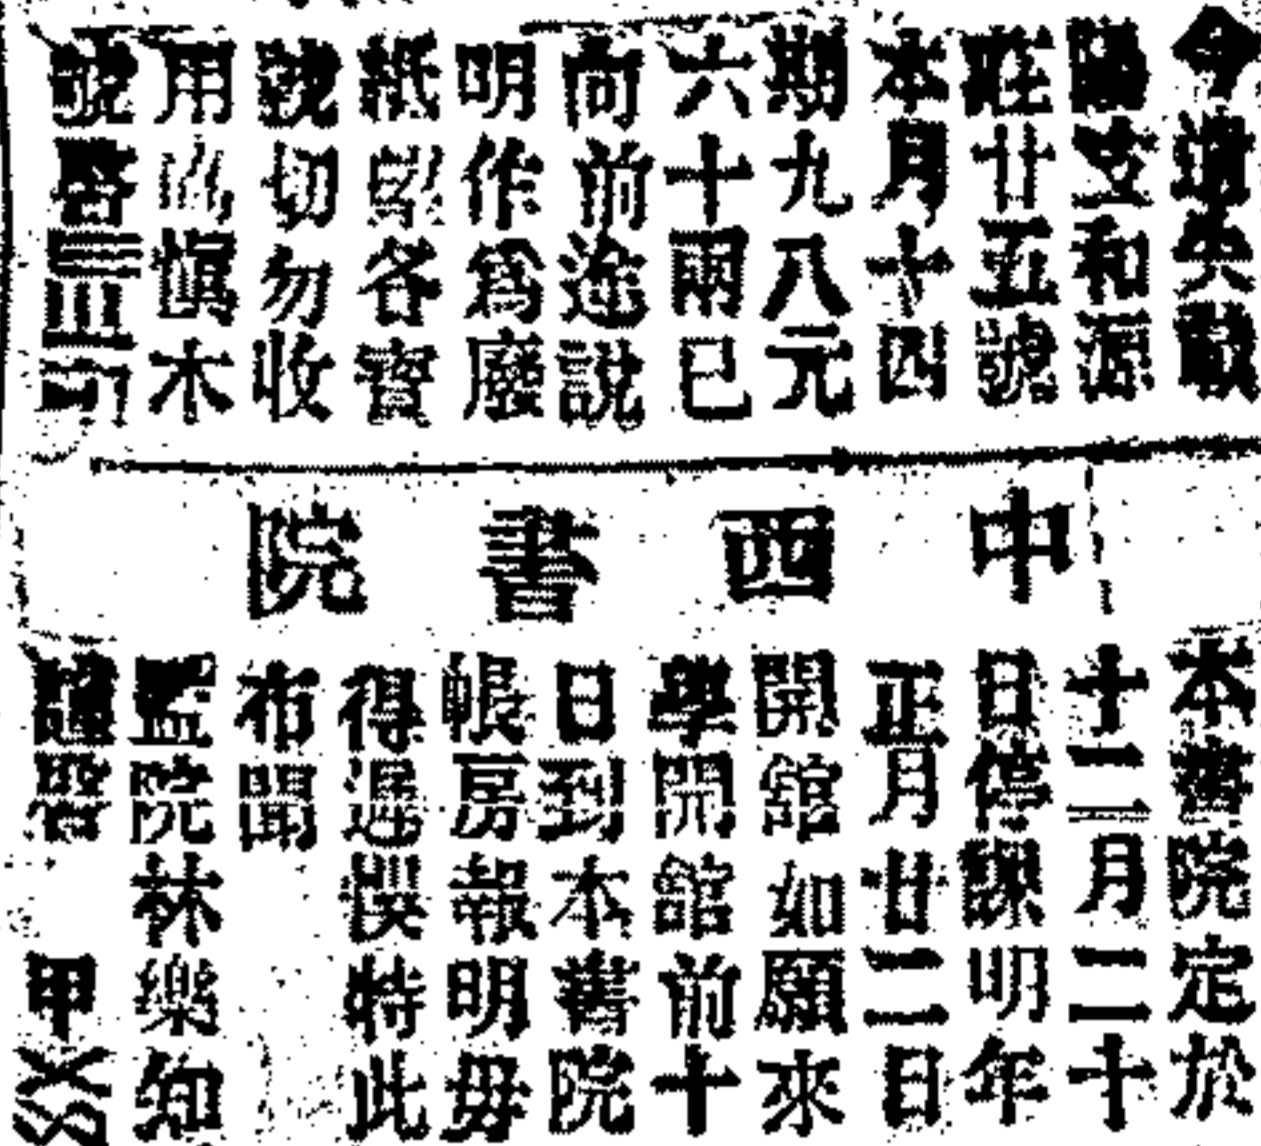 今遺失漢
陽笠和源
莊廿五號
本月十四
期九八元
六十兩已
向前途說
明作爲廢
紙各寳
號切勿收
用慎木
號啓
中西書院
本書院定於
十二月二十
日停課明年
正月廿二日
開館如願來
學開館前十
日到本書院
帳房報明毋
得遲悞特此
布聞
監院林樂知
謹啓 甲